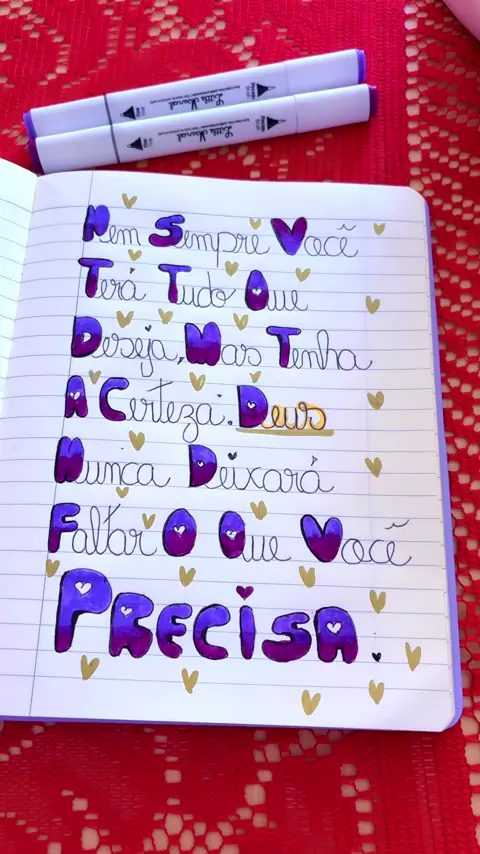 Little Marvel
Little Marvel
Nem Sempre Você
Terá Tudo Que
Deseja, Mas Tenha
A Certeza. Deus
Nunca Deixará
Faltar O Que Você
PRECISA.